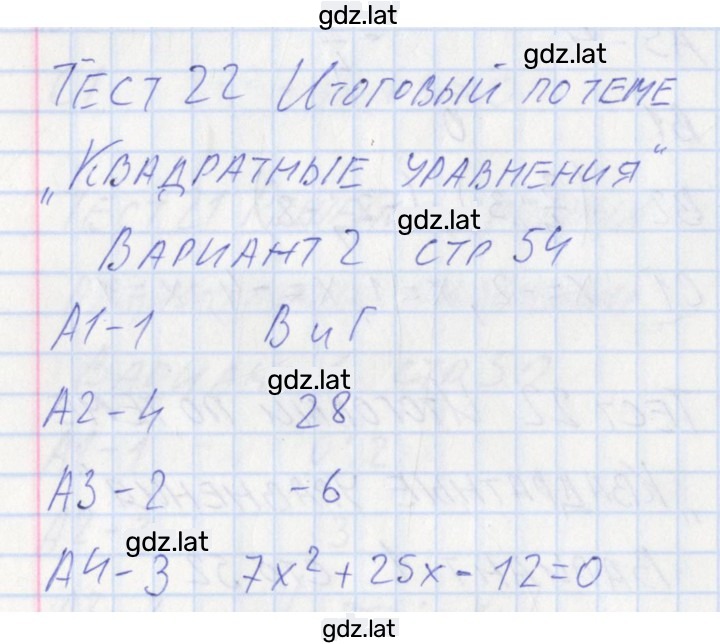 gdz.lat
gdz.lat
Тест 22 Итоговый по теме
„Квадратные уравнения“
gdz.lat
Вариант 2 стр 54
А1-1 В и Г
gdz.lat
А2-4 28
А3-2 -6
gdz.lat
А4-3 7x²+25x-12=0
gdz.lat